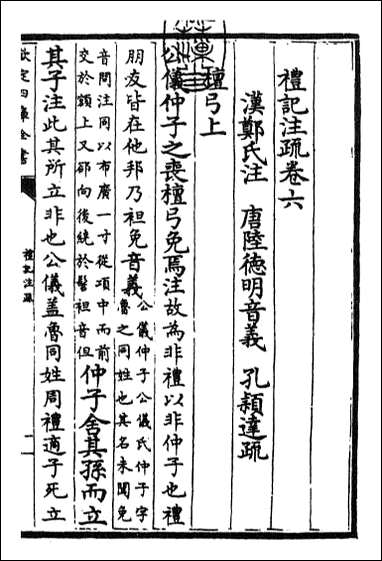 禮記注疏卷六
漢鄭氏注　唐陸德明音義　孔穎達疏
檀弓上
公儀仲子之喪檀弓免焉注故為非禮以非仲子也禮
朋友皆在他邦乃袒免音義公儀仲子公儀氏仲子字
魯之同姓也其名未聞免
音問注同以布廣一寸從項中而前
交於額上又郤向後繞於髻袒音但仲子舍其孫而立
其子注此其所立非也公儀蓋魯同姓周禮適子死立
欽定四庫全書
禮記注疏